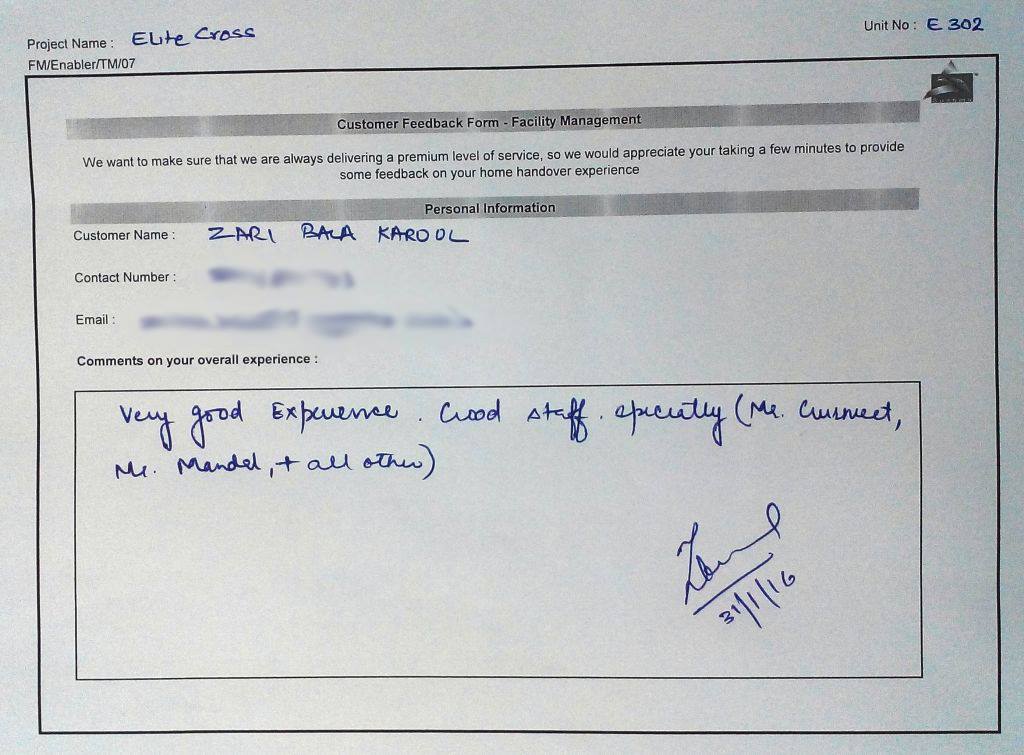 Project Name : Elite Cross
Unit No : E 302
FM/Enabler/TM/07
Customer Feedback Form - Facility Management
We want to make sure that we are always delivering a premium level of service, so we would appreciate your taking a few minutes to provide
some feedback on your home handover experience
Personal Information
Customer Name : ZARI BALA KAROOL
Contact Number :
Email :
Comments on your overall experience :
Very good Experience. Good staff. specially (Mr. Gurmeet,
Mr. Mandal, + all other)
31/1/16